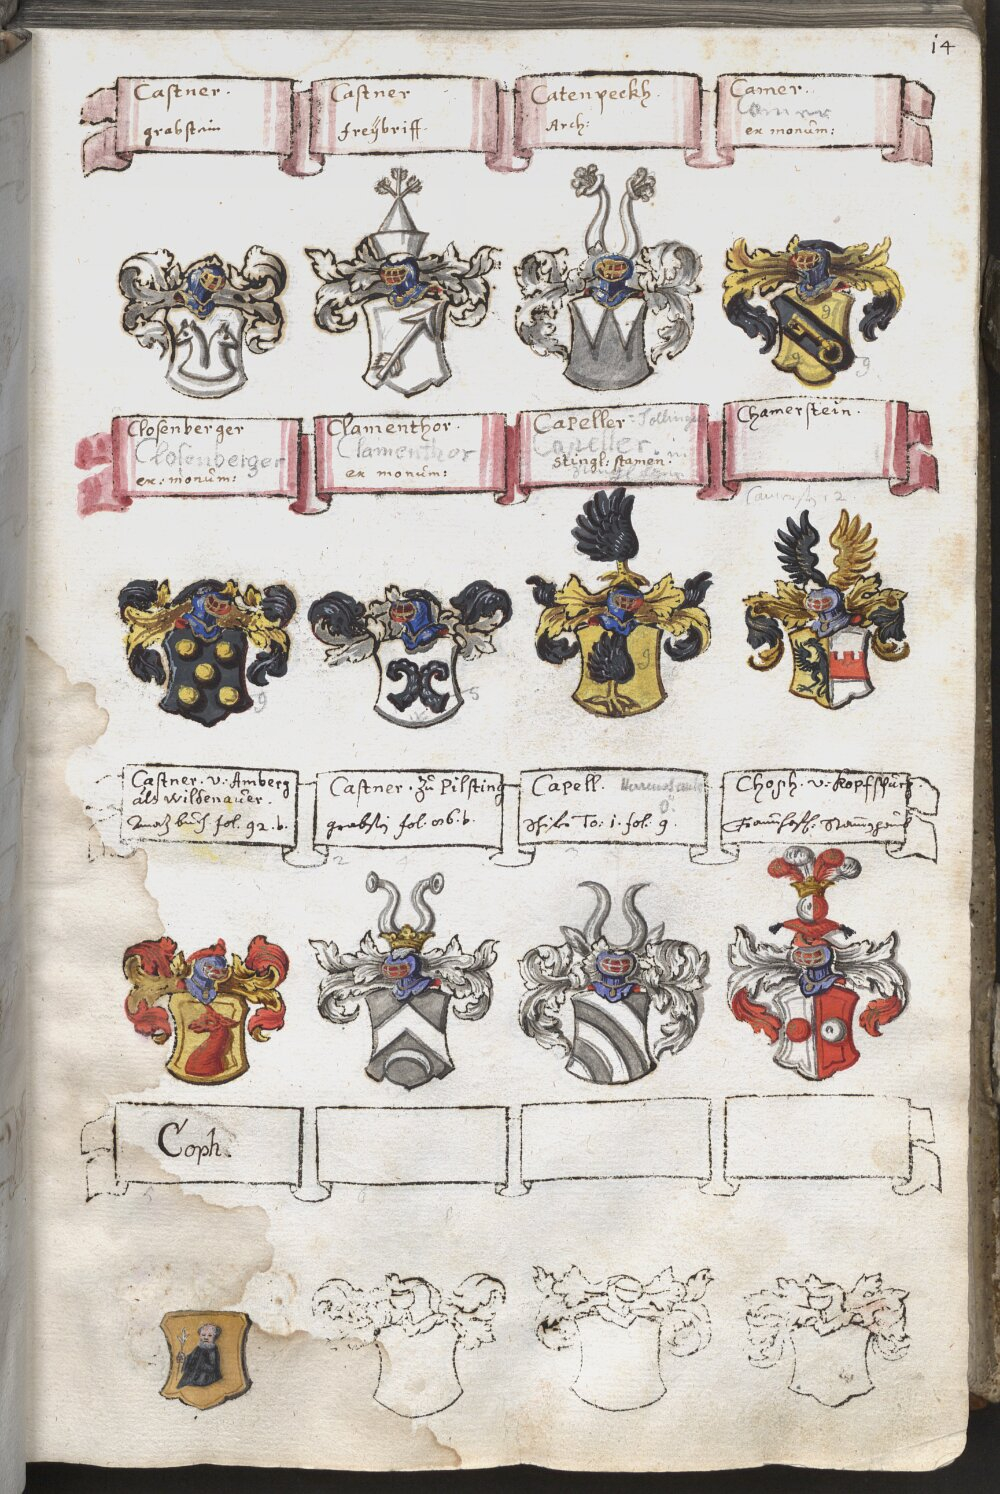 14
Castner.
grabstain
Castner
freÿbriff.
Catenpeckh.
Arch:
Camer.
Camer
ex monům:
Closenberger
Closenberger
ex: monům:
Clamenthor.
Clamenthor
ex monům:
Capeller
Capeller
stingl: stamen.
Chamerstein.
9
9
9
9
9
S
Castner. v. Amberg
als Wildenaůer.
fol. 92. b.
Castner. Zů Pilsting
grabstn fol. 086. b.
Capell.
To: 1. fol. 9.
Choph. v. Kopfspůrg.
2
3
Coph.
5